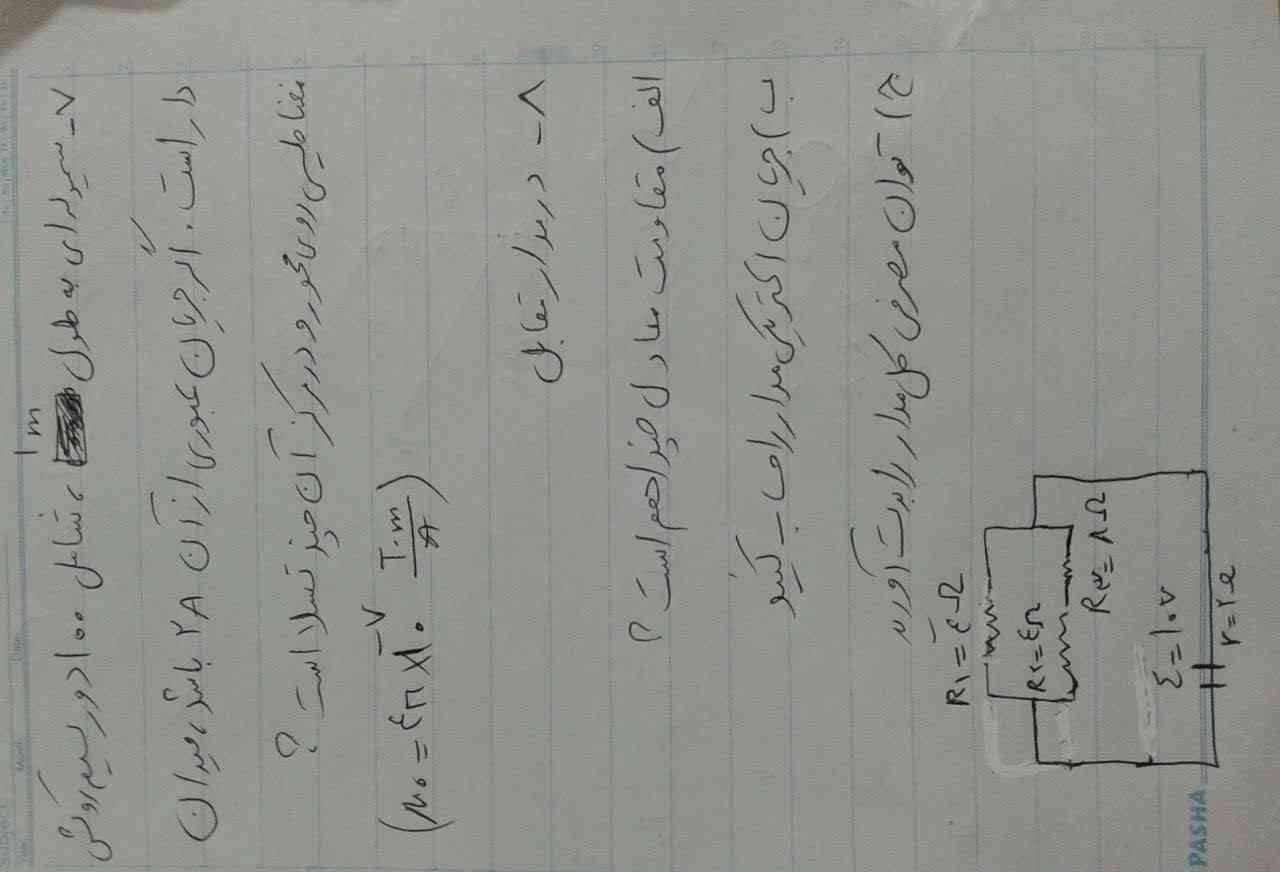 ۷- سیملوله‌ای به طول 1m ، شامل ۱۰۰ دور سیم روکش
دار است. اگر جریان عبوری از آن ۲A باشد، میدان
مغناطیسی روی محور و در مرکز آن چند تسلا است ؟
(μ₀ = ۴π × ۱۰⁻⁷ T.m/A)
۸- در مدار مقابل
الف) مقاومت معادل چند اهم است ؟
ب) جریان الکتریکی مدار را حساب کنید
ج) توان مصرفی کل مدار را بدست آورید
R₁ = ۴Ω
R₂ = ۴Ω
R₃ = ۸Ω
ε = ۱۰v
r = ۲Ω
PASHA